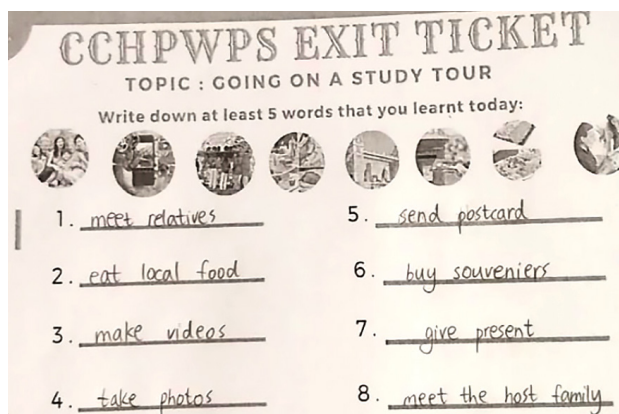 CCHPWPS EXIT TICKET
TOPIC : GOING ON A STUDY TOUR
Write down at least 5 words that you learnt today:
1. meet relatives
2. eat local food
3. make videos
4. take photos
5. send postcard
6. buy souveniers
7. give present
8. meet the host family